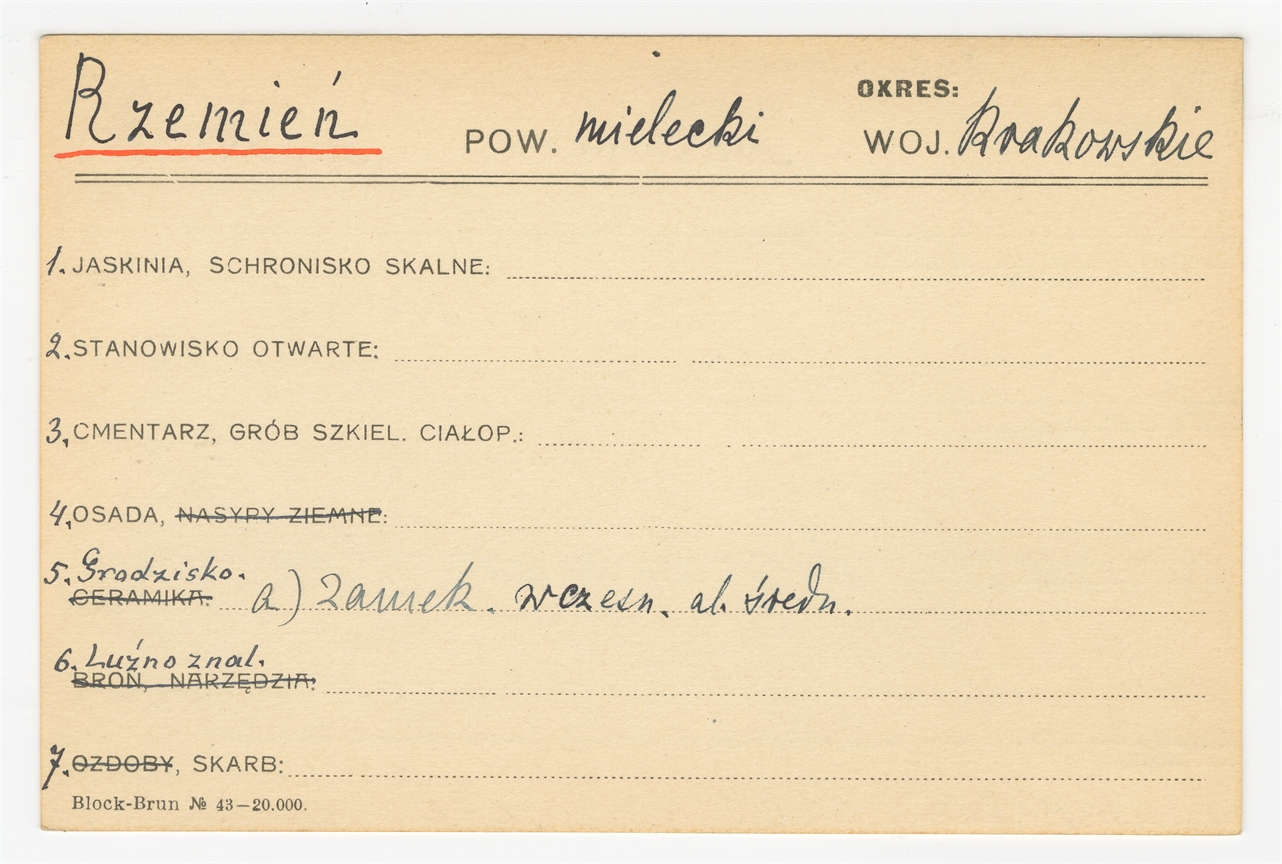 OKRES:
Rzemień POW. mielecki WOJ. Krakowskie
1. JASKINIA, SCHRONISKO SKALNE:
2. STANOWISKO OTWARTE:
3, CMENTARZ, GRÓB SZKIEL. CIAŁOP.:
4, OSADA, NASYPY ZIEMNE:
5. Grodzisko.
CERAMIKA: a) Zamek. wczesn. al. średn.
6. Luźno znal.
BROŃ, NARZĘDZIA:
7. OZDOBY, SKARB:
Block-Brun № 43—20.000.